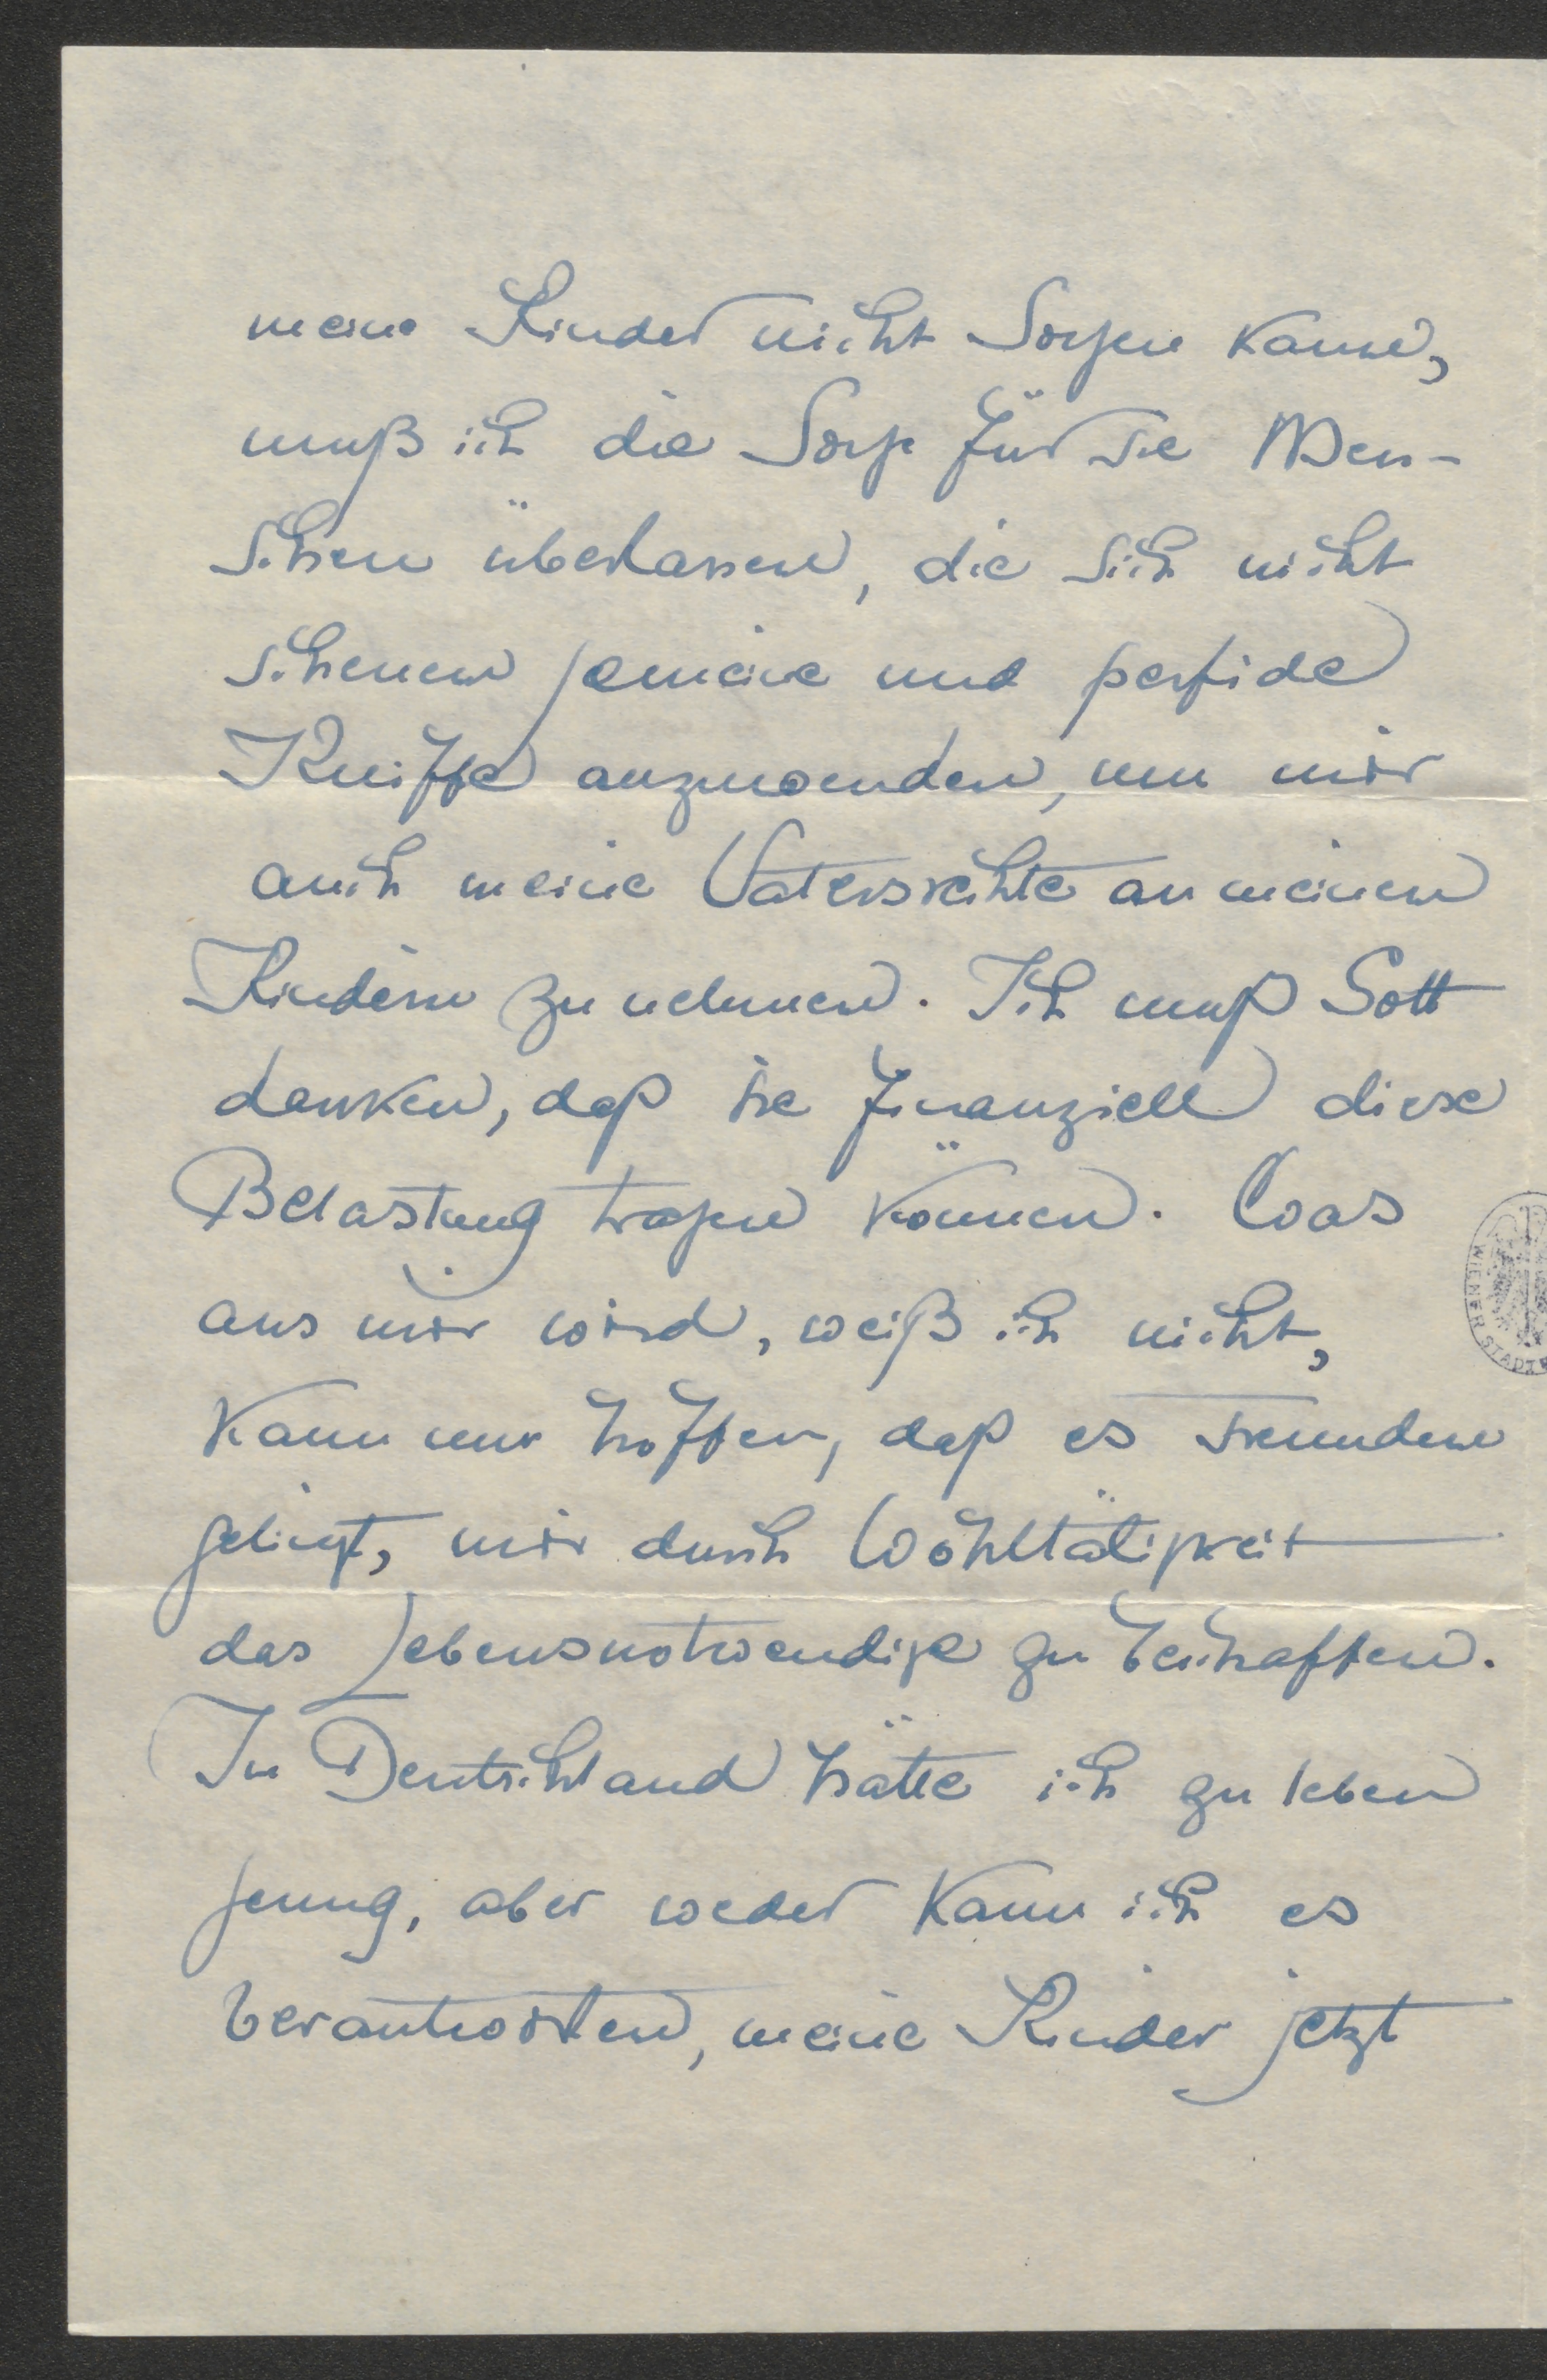 meine Kinder nicht sorgen kann,
muß ich die Sorge für sie Men-
schen überlassen, die sich nicht
scheuen gemeine und perfide
Kniffe anzuwenden, um mir
auch meine Vatersrechte an meinen
Kindern zu nehmen. Ich muß Gott
danken, daß sie finanziell diese
Belastung tragen können. Was
aus mir wird, weiß ich nicht,
kann nur hoffen, daß es Freunden
gelingt, mir durch Wohltätigkeit
das Lebensnotwendige zu beschaffen.
In Deutschland hätte ich zu leben
genug, aber weder kann ich es
verantworten, meine Kinder jetzt
WIENER STADT